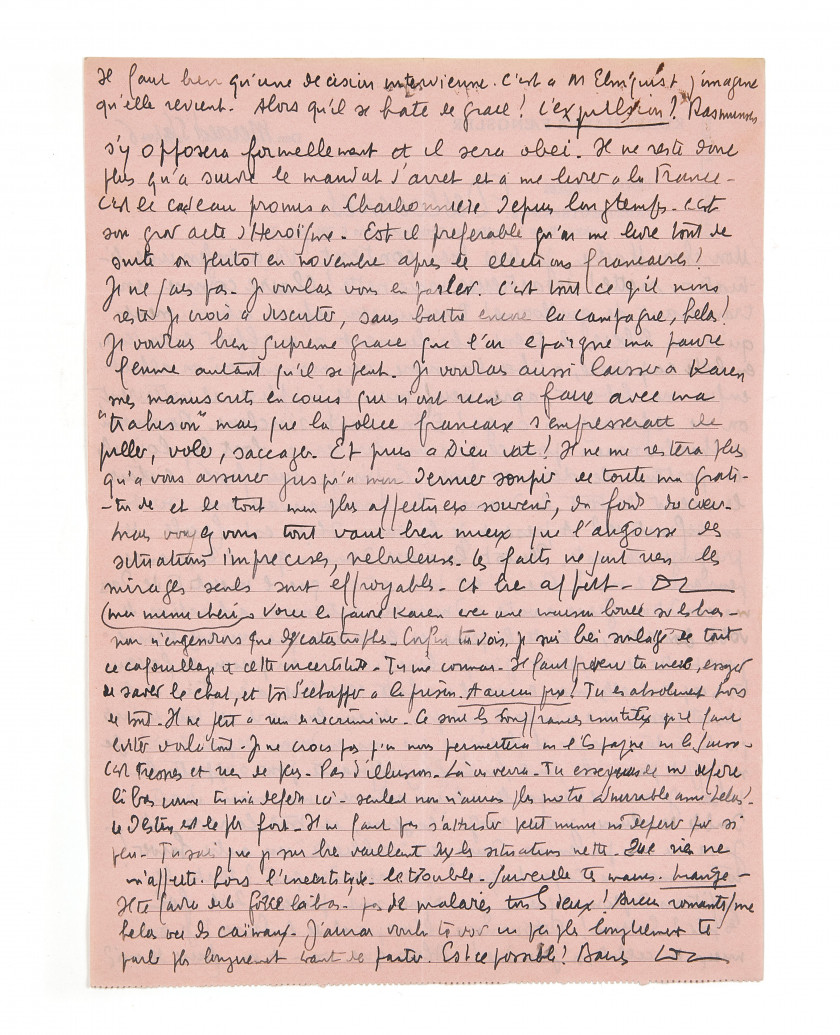 Il faut bien qu'une decision intervienne. C'est a M Elmquist j'imagine
qu'elle revient. Alors qu'il se hate de grace! L'expulsion? Rasmussen
s'y opposera formellement et il sera obei. Il ne reste donc
plus qu'a suivre le mandat d'arret et a me livrer a la France -
C'est le cadeau promis a Charbonniere depuis longtemps. C'est
son grand acte d'Heroïsme. Est il preferable qu'on me livre tout de
suite ou plutot en novembre apres les elections francaises?
Je ne sais pas. Je voudrais vous en parler. C'est tout ce qu'il nous
reste je crois a discuter, sans battre encore la campagne, helas!
Je voudrais bien supreme grace que l'on epargne ma pauvre
femme autant qu'il se peut. Je voudrais aussi laisser a Karen
mes manuscrits en cours qui n'ont rien a faire avec ma
"trahison" mais que la police francaise s'empresserait de
piller, voler, saccager. Et puis a Dieu vat! Il ne me restera plus
qu'a vous assurer jusqu'a mon dernier soupir de toute ma grati-
-tude et de tout mon plus affectueux souvenir, du fond du cœur.
Mais voyez vous tout vaut bien mieux que l'angoisse des
situations imprecises, nebuleuses. Les faits ne sont rien les
mirages seuls sont effroyables. Et bien affect. -
Mon mimi cheri voici la pauvre Karen avec une maison louée sur les bras -
nous n'engendrons que des catastrophes. Enfin tu vois, je suis bien soulagé de tout
ce cafouillage et cette incertitude. Tu me connais. Il faut prevenir ta mere, essayer
de sauver le chat, et toi d'echapper a la prison. A aucun prix! Tu es absolument hors
de tout. Il ne sert a rien de recriminer. Ce sont les souffrances inutiles qu'il faut
eviter voila tout. Je ne crois pas qu'on nous permettra ni l'Espagne ni la Suisse.
C'est Fresnes et rien de plus. Pas d'illusion. Là on verra. Tu essayeras de me defendre
là bas comme tu m'as defendu ici. seulement nous n'aurons plus notre admirable amie helas!
Le Destin est le plus fort. Il ne faut pas s'attrister petit mimi ni deperir pour si
peu. Tu sais que je suis bien vaillant dans les situations nettes. Que rien ne
m'affecte. Hors l'incertitude. le trouble. Surveille ta maman. Mange -
Il te faudra de la force là bas. pas de malades tous les deux! Aucun romantisme
helas avec des caïmans. J'aurais voulu te voir un peu plus longuement te
parler plus longuement avant de partir. Est ce possible? Baisers